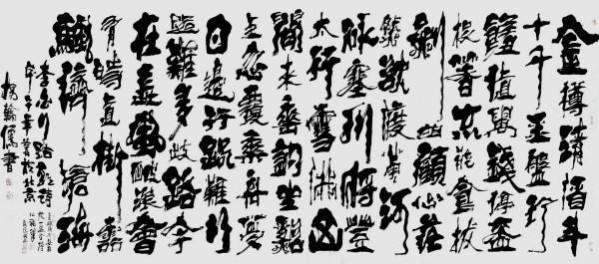 金樽清酒斗
十千玉盤珍
羞值萬錢停盃
投箸不能食拔
劍四顧心茫
然欲渡黃河
冰塞川將登
太行雪滿山
閒來垂釣坐溪
上忽復乘舟夢
日邊行路難行
路難多歧路今
在長風破浪會
有時直掛雲
帆濟滄海
李白行路難詩
於北京
楊書